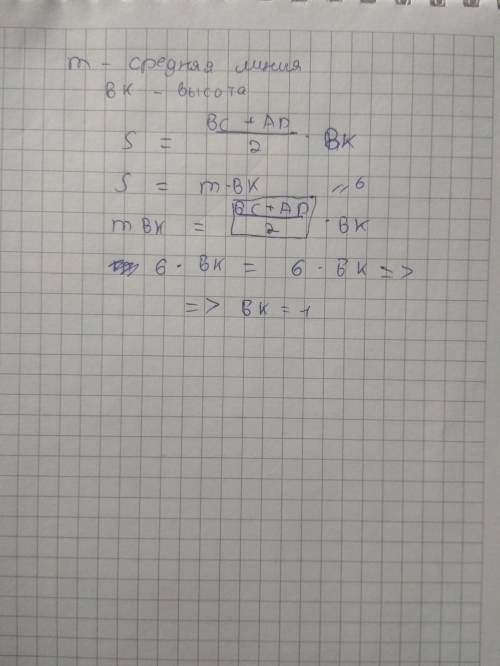 m - средняя линия
BK - высота
S = BC + AD / 2 · BK
S = m · BK
m BK = BC + AD / 2 · BK
6
6 · BK = 6 · BK =>
=> BK = 1